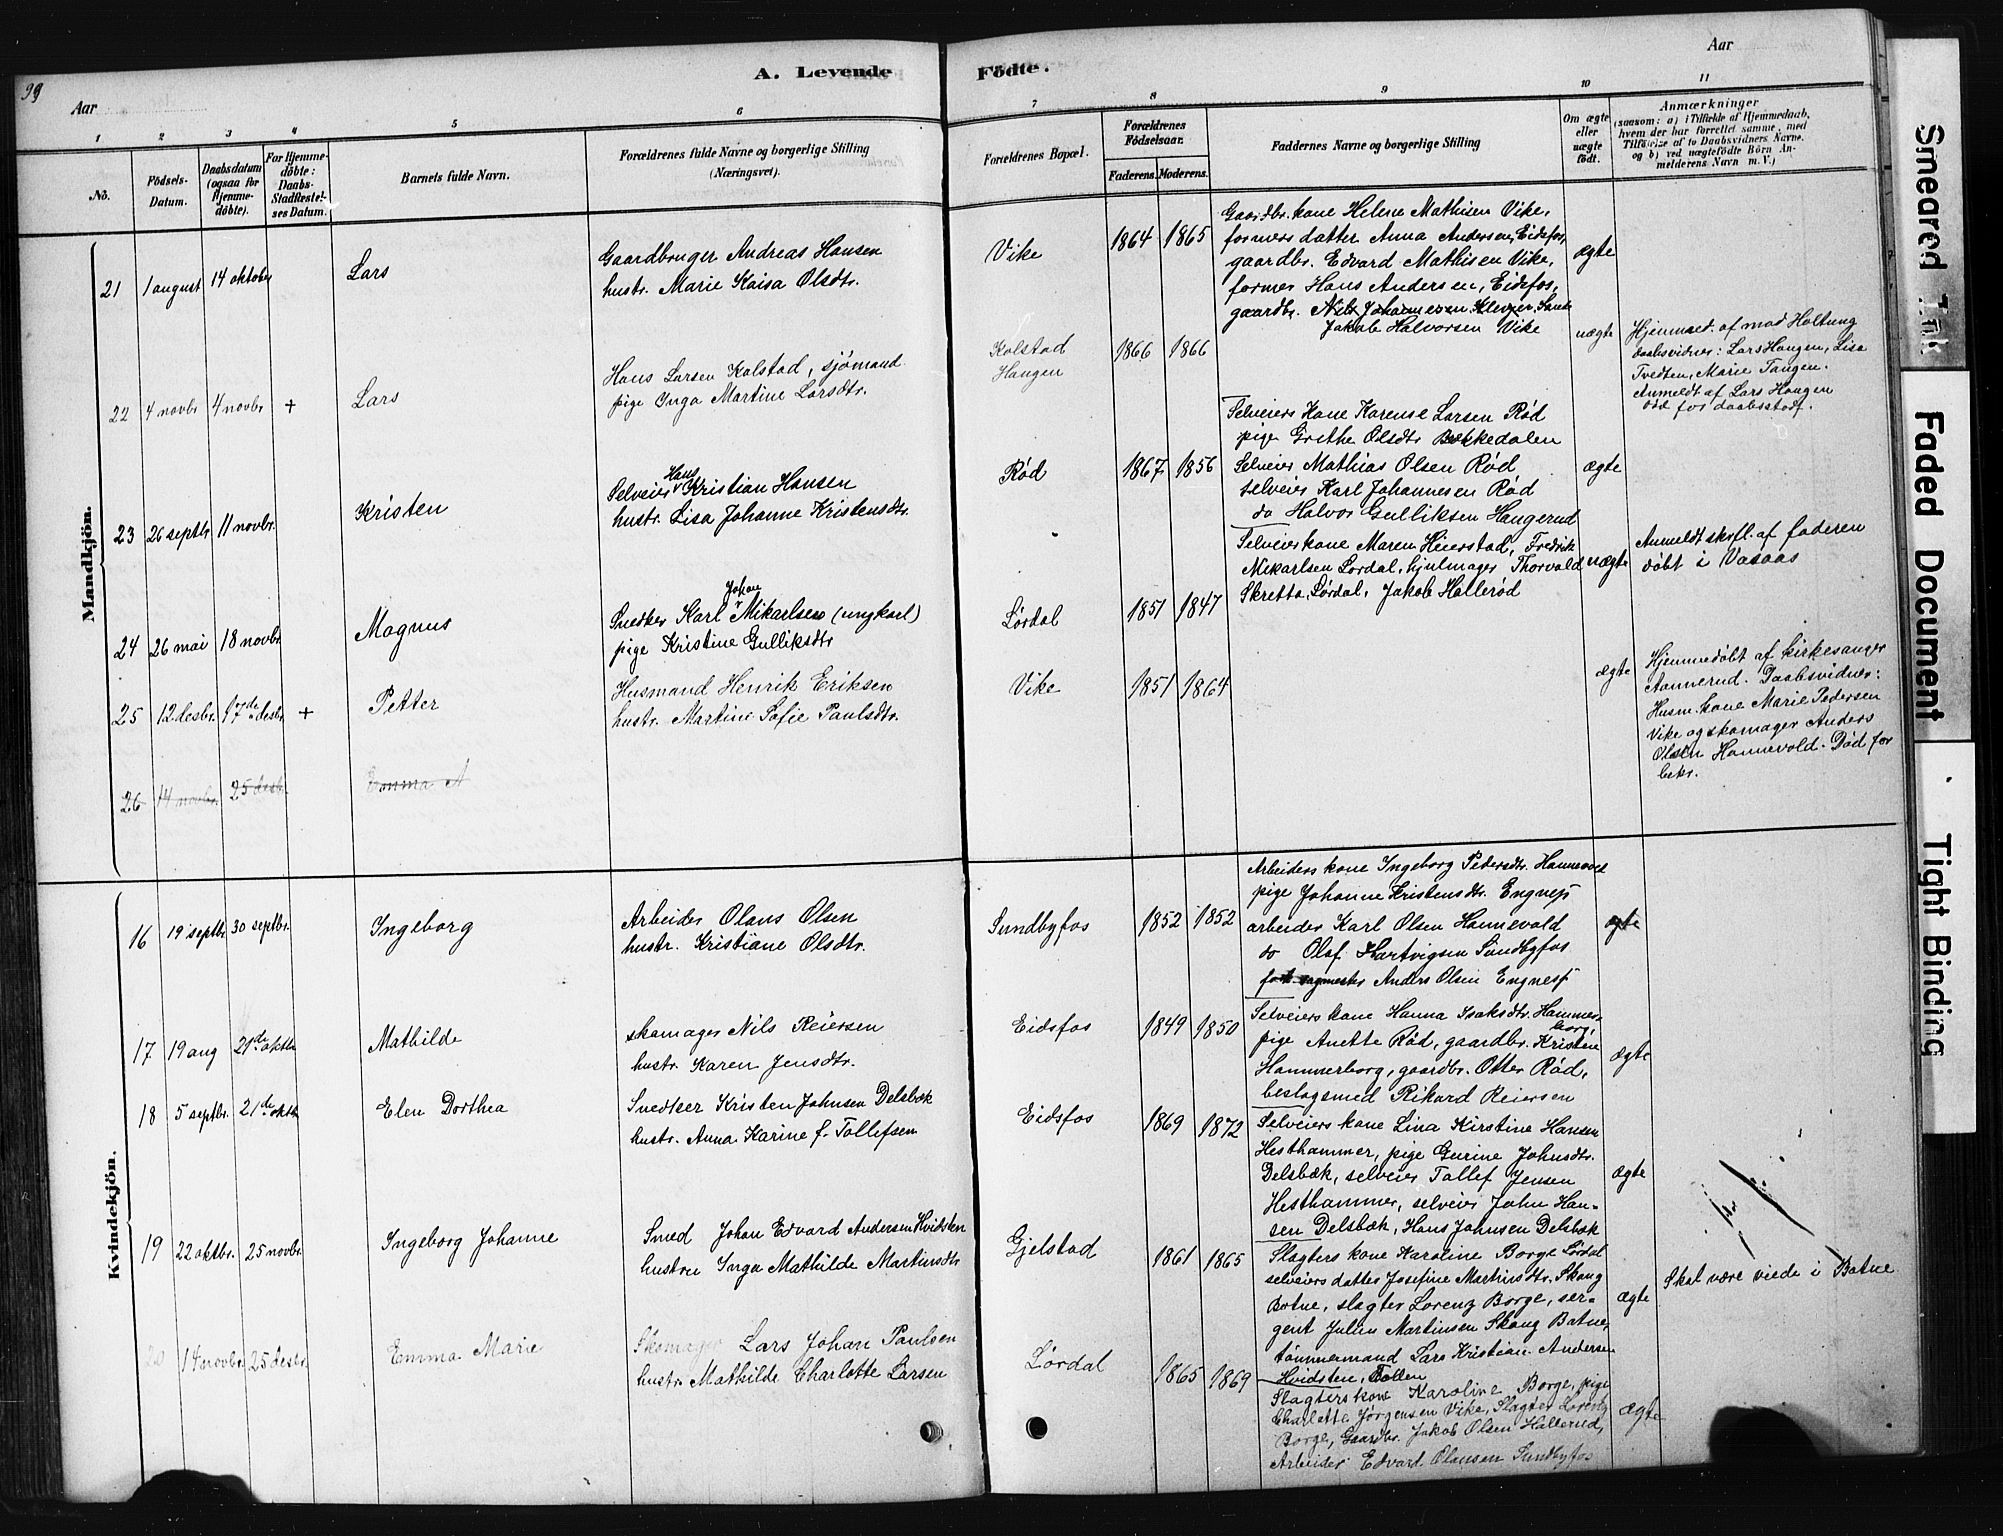 99
A. Levende
Födte.
Aar
Aar
1
2
3
4
5
6
7
8
9
10
11
No.
Födsels-
Datum.
Daabsdatum
(ogsaa for
Hjemme-
döbte).
For Hjemme-
döbte:
Daabs-
Stadfæstel-
ses Datum.
Barnets fulde Navn.
Forældrenes fulde Navne og borgerlige Stilling
(Næringsvei).
Forældrenes Bopæl.
Forældrenes
Födselsaar.
Faderens.
Moderens.
Faddernes Navne og borgerlige Stilling
Om ægte
eller
uægte
födt.
Anmærkninger
(saasom: a) i Tilfælde af Hjemmedaab,
hvem der har forrettet samme, med
Tilföielse af to Daabsvidners Navne,
og b) ved uægtefödte Börn An-
melderens Navn m. V.)
Mandkjön.
21
1 august
14 oktober
Lars
Gaardbruger Andreas Hansen
hustr. Marie Kaisa Olsdtr.
Vike
1864
1865
Gaardbr. kone Helene Mathisen Vike,
formers datter Anna Andersen, Eidsfos,
gaardbr. Edvard Mathisen Vike,
former Hans Andersen, Eidsfos,
gaardbr. Nils Johannesen Klevjer Sande
Jakob Halvorsen Vike
ægte
22
4 novbr
4 novbr
+
Lars
Hans Larsen Kolstad, sjømand
pige Inga Martine Larsdtr.
Kolstad
Haugen
1866
1866
uægte
Hjemmed. af mad Holtung
daabsvidner: Lars Haugen, Lisa
Tvedten, Marie Tangen.
Anmeldt af Lars Haugen
død for daabsstadf.
23
26 septbr
11 novbr.
Kristen
Hans
Selveier Kristian Hansen
hustr. Lisa Johanne Kristensdtr.
Rød
1867
1856
Selveiers Kone Karense Larsen Rød
pige Grethe Olsdtr Bækkedalen
Selveier Mathias Olsen Rød
selveier Karl Johannesen Rød
do Halvor Gulliksen Haugerud
ægte
24
26 mai
18 novbr.
Magnus
Johan
Snedker Karl Mikaelsen (ungkarl)
pige Kristine Gulliksdtr
Lørdal
1851
1847
Selveierkone Maren Heierstad, Fredrik
Mikarlsen Lørdal, hjulmager Thorvald
Skretta, Lørdal, Jakob Hallerød
uægte
Anmeldt skrftl. af faderen
døbt i Vasaas
25
12 desbr.
17de desbr
+
Petter
Husmand Henrik Eriksen
hustr. Martine Sofie Paulsdtr.
Vike
1851
1864
ægte
Hjemmedøbt af kirkesanger
Aannerud. Daabsvidner:
Husm. kone Marie Pedersen
Vike og skomager Anders
Olsen Hannevold. Død før
bekr.
26
14 novbr.
25 desb.
Emma A
Kvindekjön.
16
19 septbr
30 septbr.
Ingeborg
Arbeider Olaus Olsen
hustr. Kristiane Olsdtr.
Sundbyfos
1852
1852
Arbeiders kone Ingeborg Pedersdtr. Hannevold
pige Johanne Kristensdtr. Engnes
arbeider Karl Olsen Hannevold
do Olaf Hartvigsen Sundbyfos
Anders Olsen Engnes
ægte
17
19 aug
21de oktbr
Mathilde
skomager Nils Reiersen
hustr. Karen Jensdtr.
Eidsfos
1849
1850
Selveiers kone Hanna Isaksdtr. Hammer-
borg,
pige Anette Rød, gaardbr. Kristen
Hammerborg, gaardbr. Otter Rød,
beslagsmed Rikard Reiersen
ægte
18
5 septbr.
21de oktbr
Elen Dorthea
Snedker Kristen Johnsen Delsbæk
hustr. Anna Karine f. Tollefsen
Eidsfos
1869
1872
Selveiers kone Lina Kirstine Hansen
Hesthammer, pige Gurine Johnsdtr.
Delsbæk, selveier Tollef Jensen
Hesthammer, selveier John Han-
sen Delsbæk, Hans Johnsen Delsbæk
ægte
19
22 oktbr.
25 novbr
Ingeborg Johanne
Smed Johan Edvard Andersen Hvidsten
hustru Inga Mathilde Martinsdtr
Gjelstad
1861
1865
Slagters kone Karoline Borge Lørdal
selveiers datter Josefine Martinsdtr. Skaug
Botne, slagter Lorenz Borge, ser-
gent Julius Martinsen Skaug Botne,
tømmermand Lars Kristian Andersen
Hvidsten,
ægte
Skal være viede i Botne
20
14 novbr.
25 desbr.
Emma Marie
Skomager Lars Johan Paulsen
hustr. Mathilde Charlotte Larsen
Lørdal
1865
1869
Slagterskone Karoline Borge, pige
Charlotte Jørgensen Vike, Slagter Lorenz
Borge, Gaardbr. Jakob Olsen Hallerud,
Arbeider Edvard Olausen Sundbyfos
ægte
Smeared Ink
Faded Document
Tight Binding